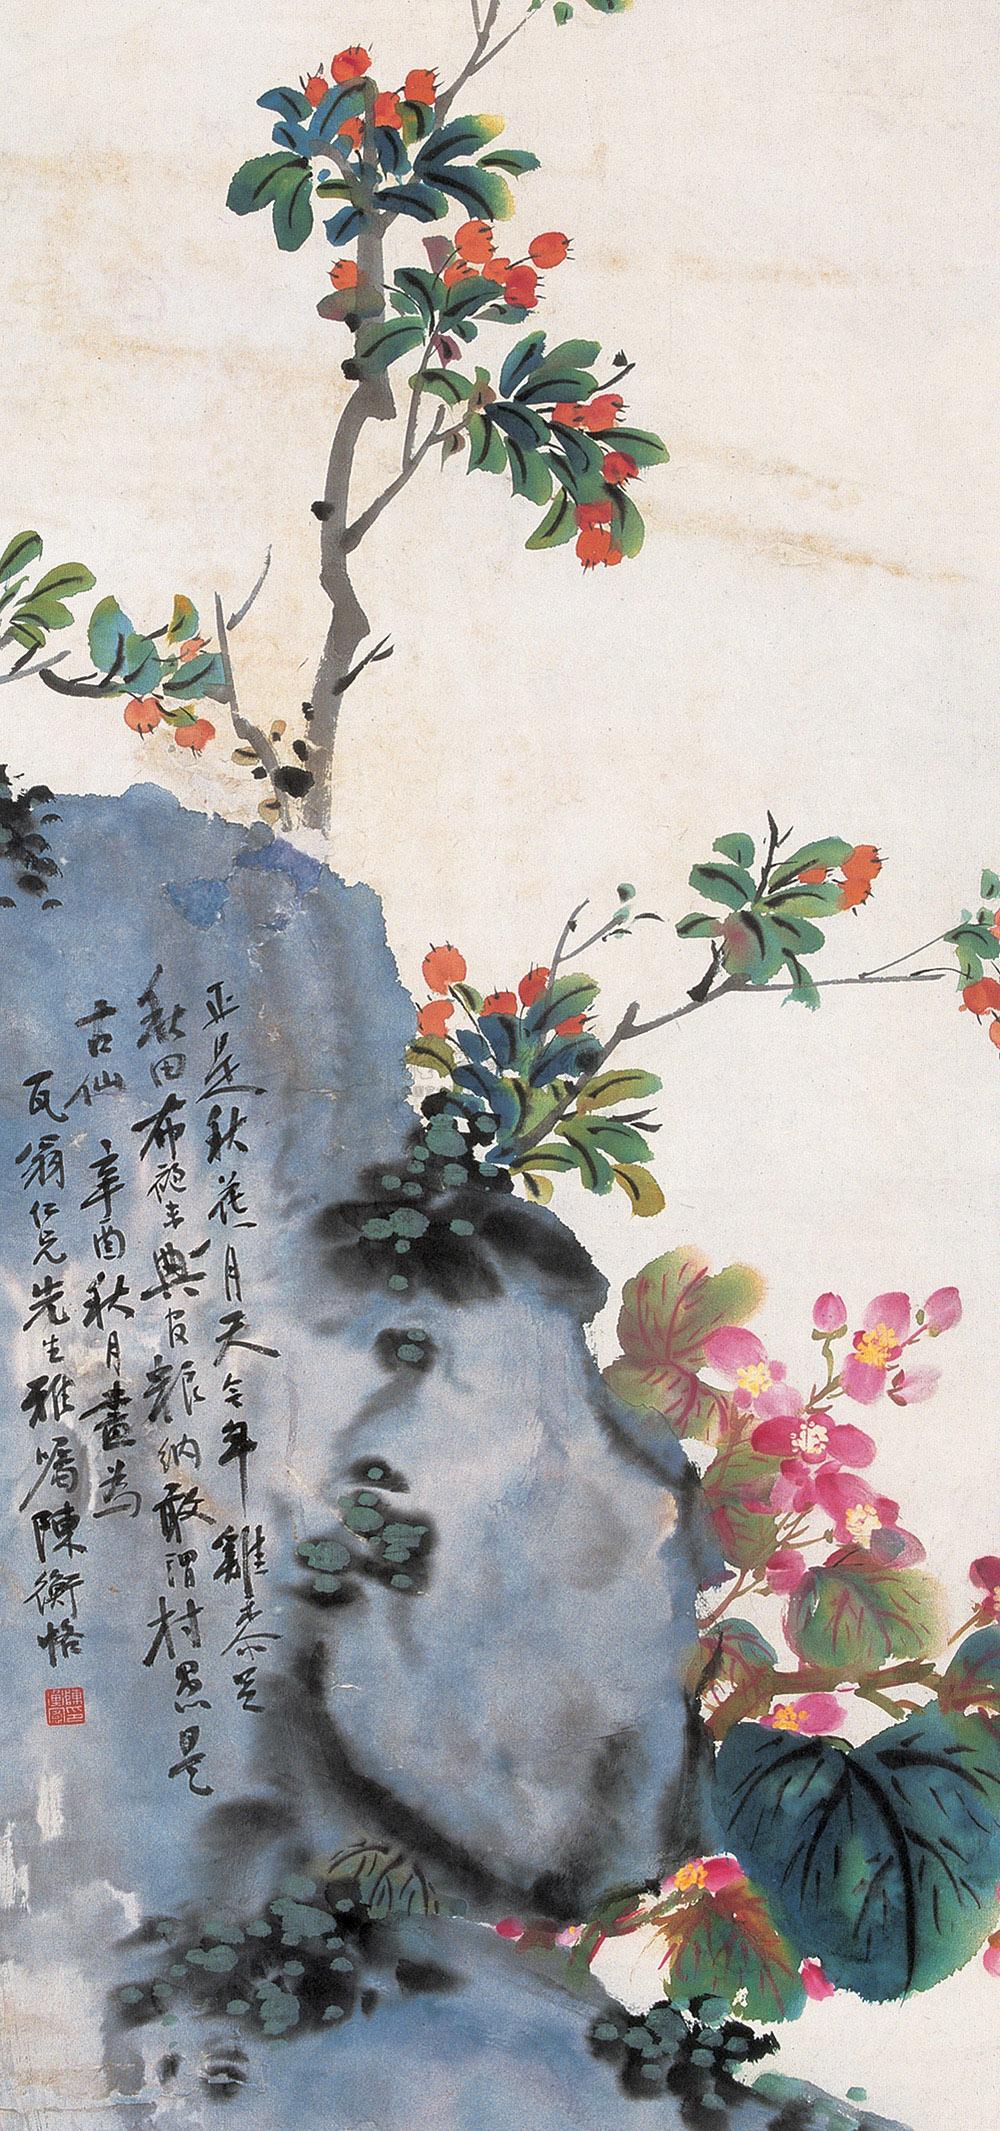 正是秋花月天今年雞黍足
秋田布袍未典官糧納敢謂村愚是
古仙 辛酉秋月畫為
瓦翁仁兄先生雅屬陳衡恪